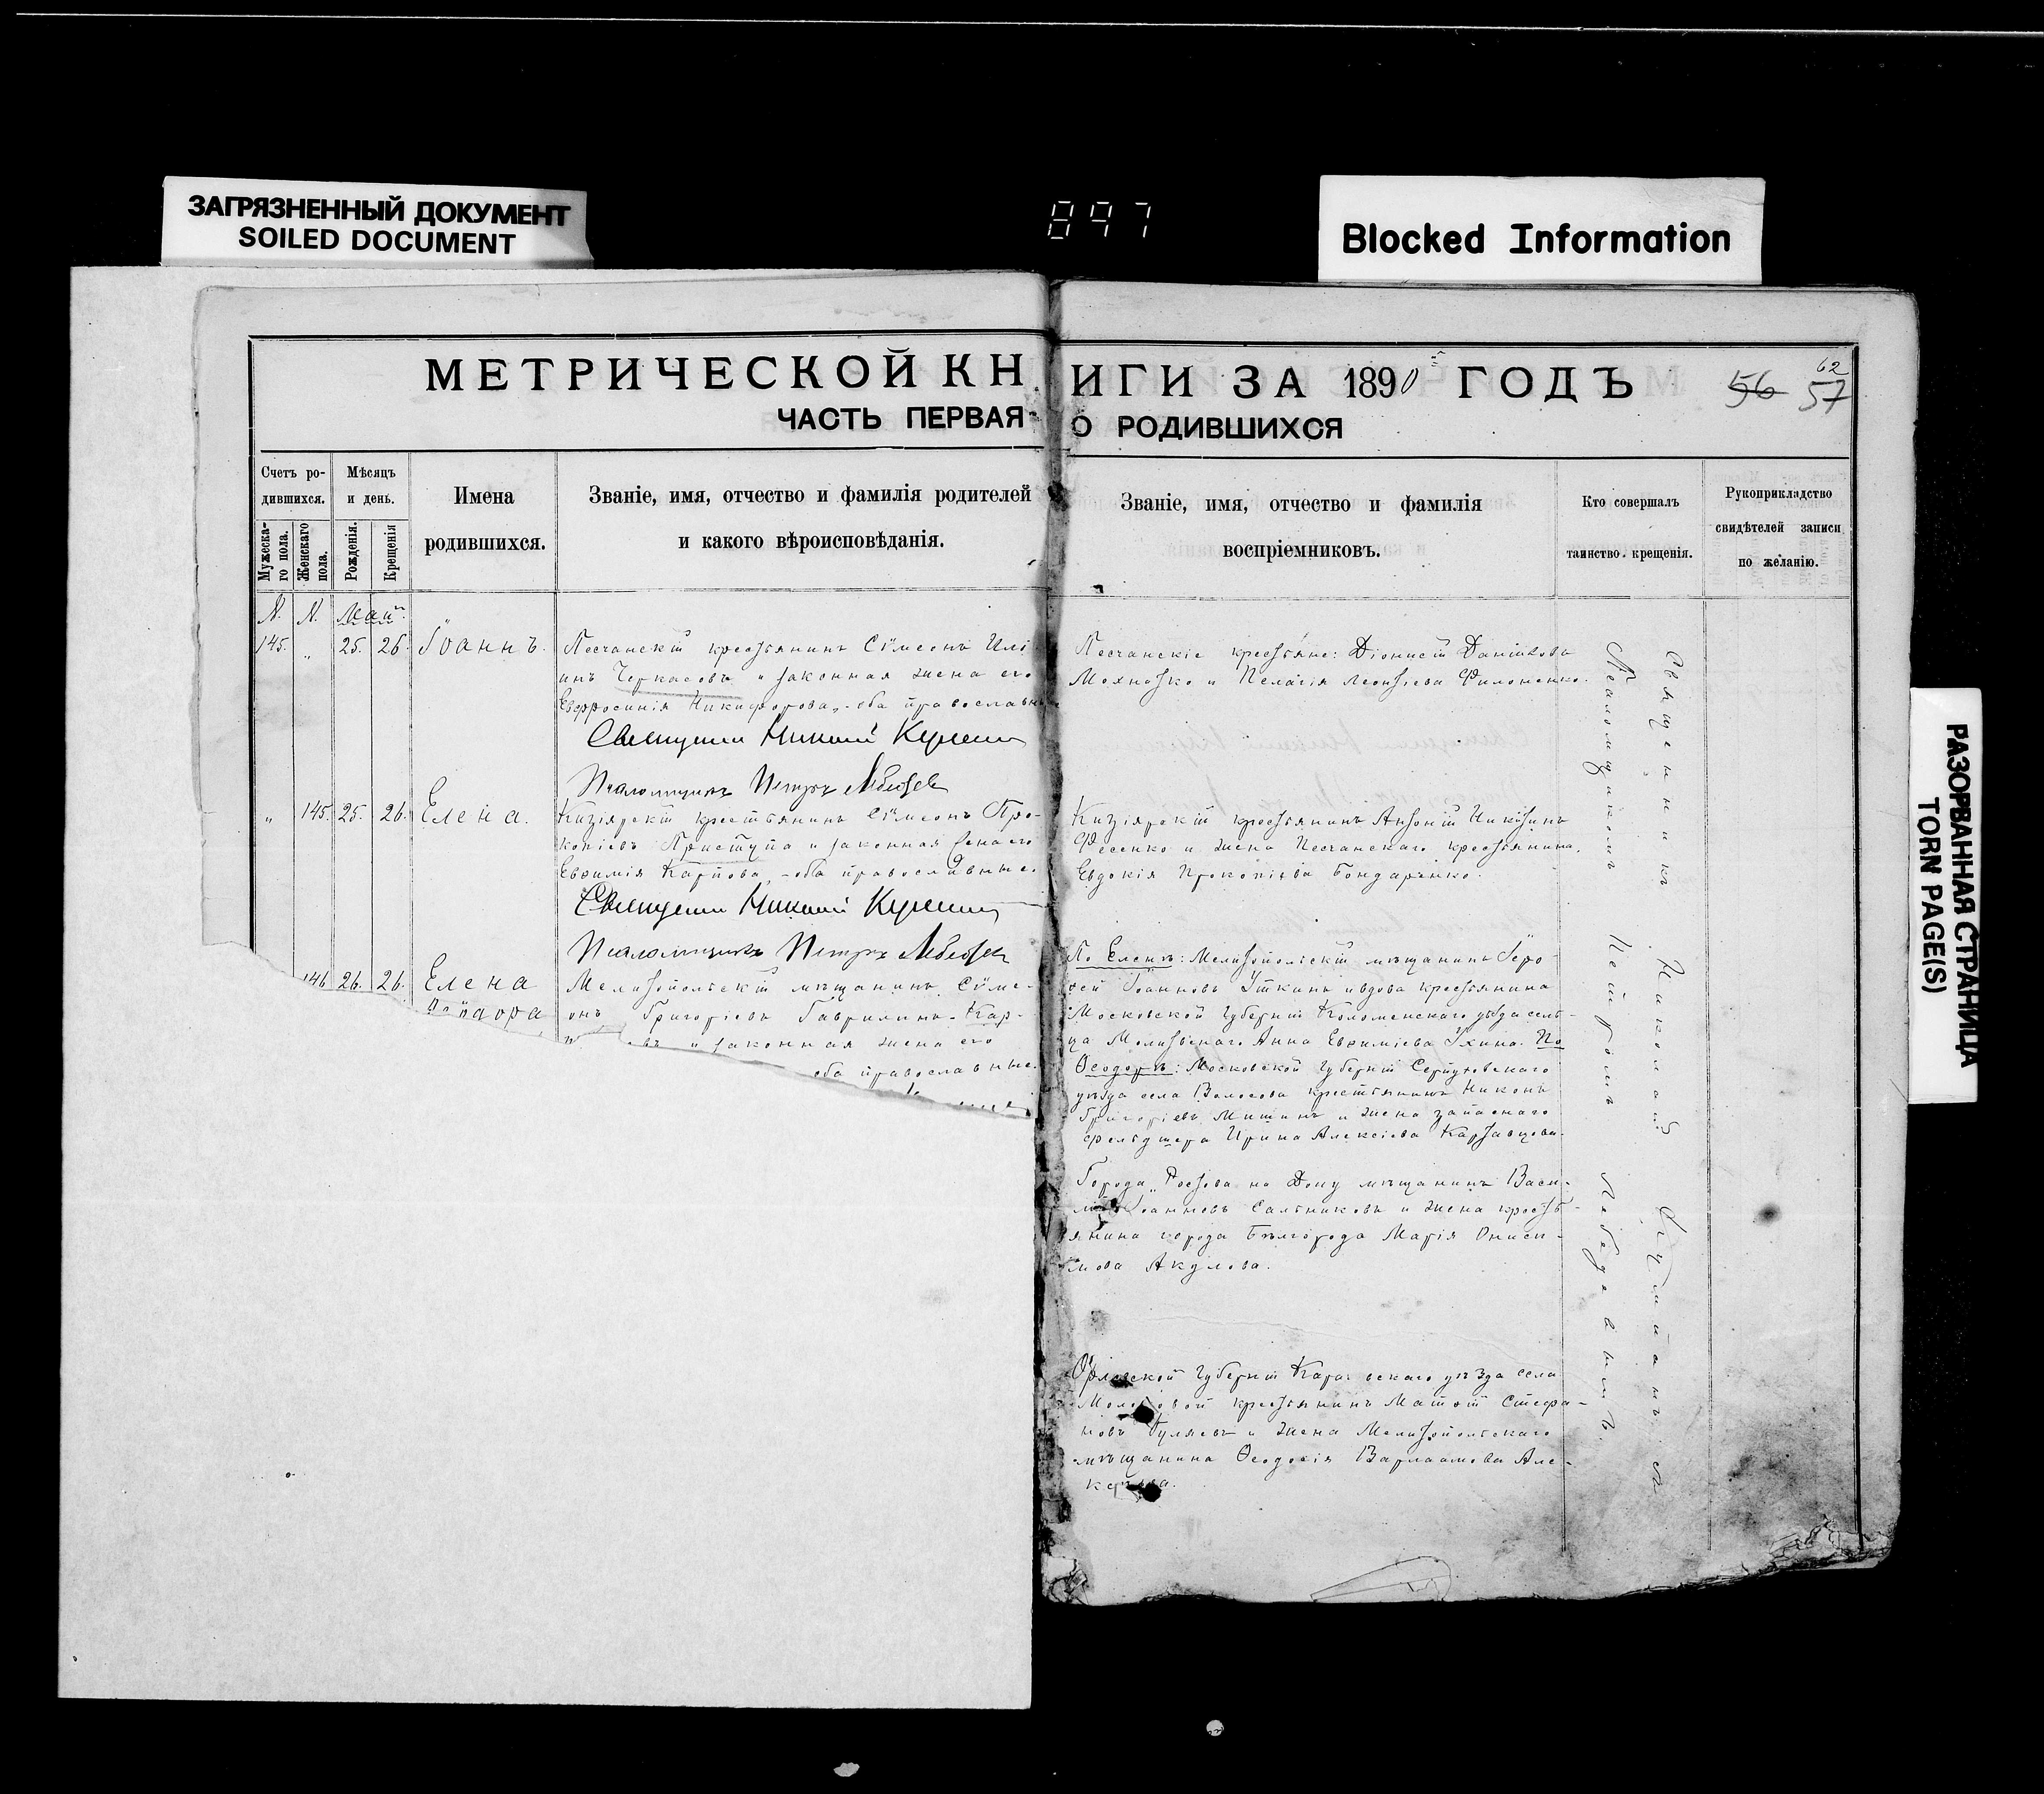 ЗАГРЯЗНЕННЫЙ ДОКУМЕНТ
SOILED DOCUMENT
897
Blocked Information
МЕТРИЧЕСКОЙ КНИГИ ЗА 1890й ГОДЪ
56 57
62
ЧАСТЬ ПЕРВАЯ О РОДИВШИХСЯ
Счетъ ро-
дившихся.
Мужеска-
го пола.
Женскаго
пола.
Мѣсяцъ
и день.
Рожденія.
Крещенія
Имена
родившихся.
Званіе, имя, отчество и фамилія родителей
и какого вѣроисповѣданія.
Званіе, имя, отчество и фамилія
воспріемниковъ.
Кто совершалъ
таинство крещенія.
Рукоприкладство
свидѣтелей записи
по желанію.
N. N. Май
145. „ 25. 26. Іоаннъ.
Песчанскій крестьянинъ Сѵмеонъ Илі
инъ Черкасовъ и законная жена его
Евфросинія Никифорова, - оба православн
Священникъ Николай
Псаломщикъ Петръ Лебедев
Песчанскіе крестьяне: Діонисій Даніиловъ
Махно и Пелагія Леонтіева Филоненко.
„ 145. 25. 26. Елена.
Кизіярскій крестьянинъ Сѵмеонъ Про-
копіевъ Приступа и законная жена его
Евѳимія Карпова, - оба православные.
Священникъ Николай
Псаломщикъ Петръ Лебедев
Кизіярскій крестьянинъ Антоній Никитинъ
Фесенко и жена Песчанскаго крестьянина,
Евдокія Прокопіева Бондаренко.
146 26. 26. Елена
Ѳеодора
Мелитопольскій мѣщанинъ Сѵме-
онъ Григоріевъ Гаврилинъ-Кар-
въ и законная жена его
оба православные.
По Еленѣ: Мелитопольскій мѣщанинъ Іеро-
ѳей Іоанновъ Уткинъ и вдова крестьянина
Московской губерніи Коломенскаго уѣзда сель-
ца Анна Евѳиміева Ухина. По
Ѳеодорѣ: Московской губерніи Серпуховскаго
уѣзда села Волосова крестьянинъ Никонъ
Григоріевъ Мишинъ и жена запаснаго
фельдшера Ирина Алексіева Картавцева.
Города Ростова на Дону мѣщанинъ Васи-
лій Іоанновъ Сальниковъ и жена кресть-
янина города Бѣлгорода Марія Ониси-
мова Акулова.
Орловской губерніи Карачевскаго уѣзда села
крестьянинъ Матѳій Стефа-
новъ Гуляевъ и жена Мелитопольскаго
мѣщанина Ѳеодосія Варлаамова Але-
Священникъ Николай съ
Псаломщикомъ Петромъ Лебедевымъ.
РАЗОРВАННАЯ СТРАНИЦА
TORN PAGE(S)